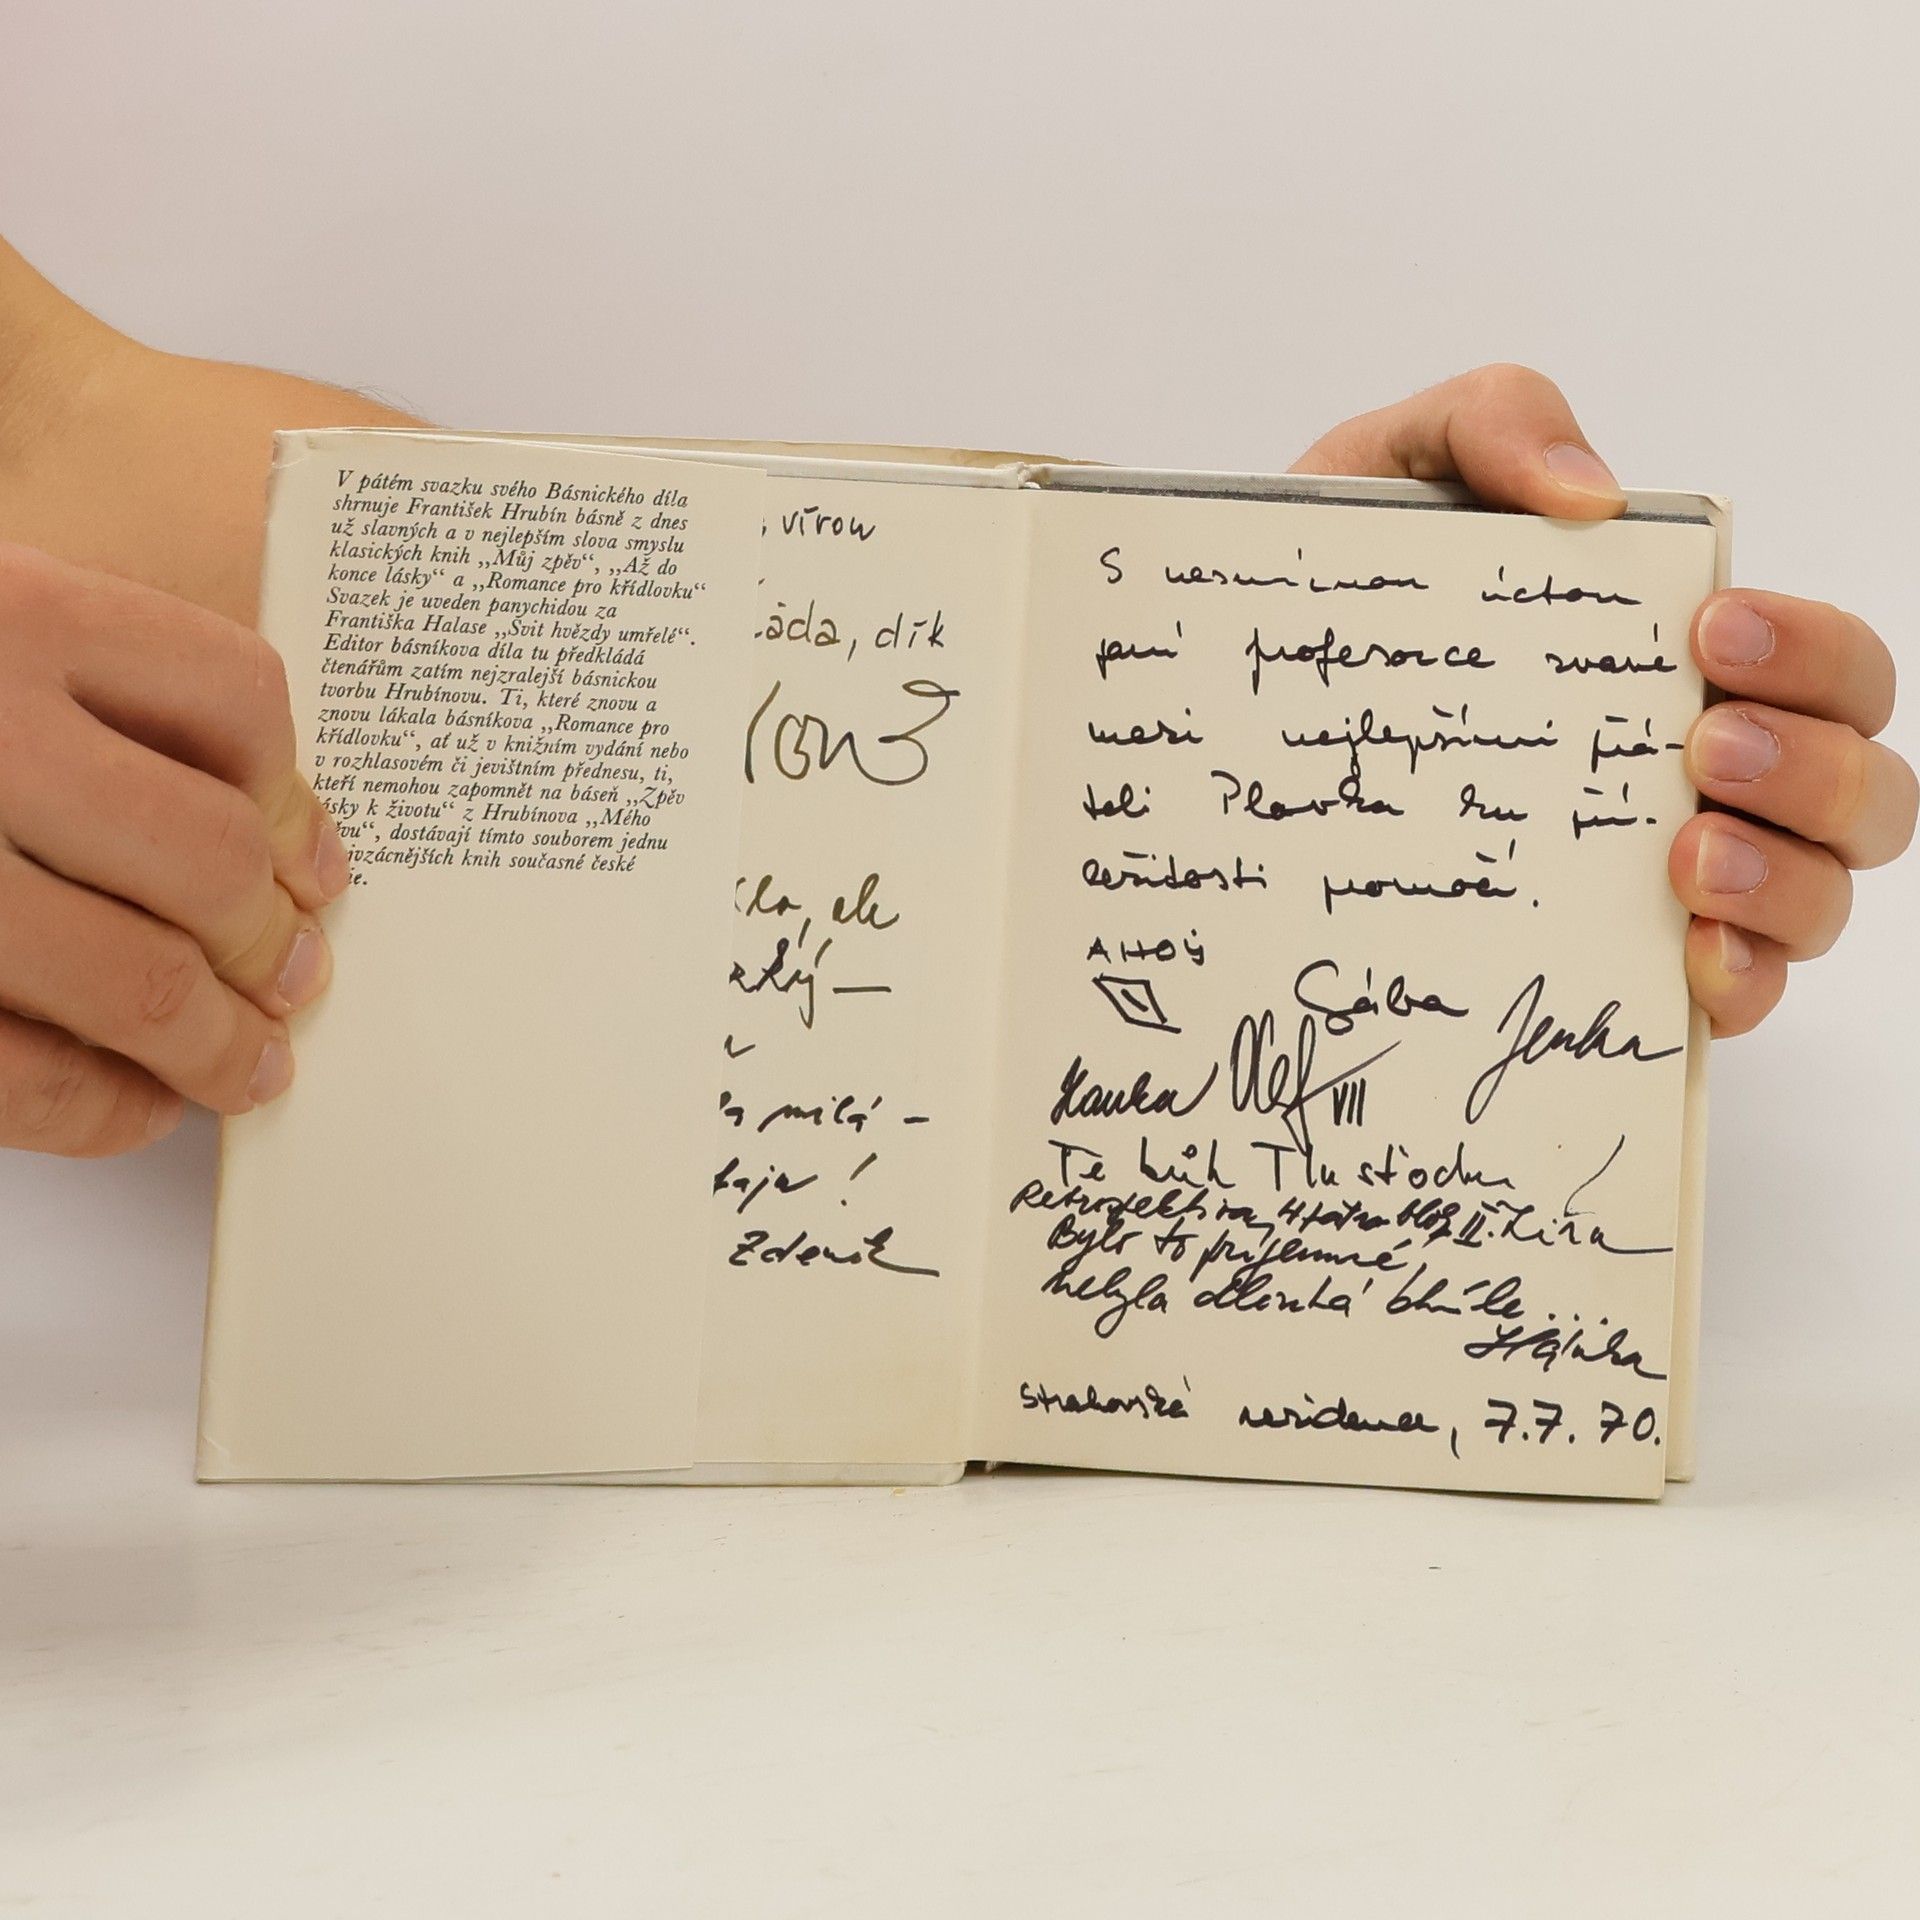 V pátém svazku svého Básnického díla
shrnuje František Hrubín básně z dnes
už slavných a v nejlepším slova smyslu
klasických knih „Můj zpěv“, „Až do
konce lásky“ a „Romance pro křídlovku“
Svazek je uveden panychidou za
Františka Halase „Svit hvězdy umřelé“.
Editor básníkova díla tu předkládá
čtenářům zatím nejzralejší básnickou
tvorbu Hrubínovu. Ti, které znovu a
znovu lákala básníkova „Romance pro
křídlovku“, ať už v knižním vydání nebo
v rozhlasovém či jevištním přednesu, ti,
kteří nemohou zapomnět na báseň „Zpěv
ásky k životu“ z Hrubínova „Mého
ěvu“, dostávají tímto souborem jednu
jvzácnějších knih současné české
ie.
vírou
áda, dík
ale
milá –
Zdeněk
S nesmírnou úctou
paní profesorce zvané
mezi nejlepšími přá-
teli Plavka ku pří-
ležitosti promočí.
AHOJ
Sába
Jenka
Hanka
VII
Te bůh Tlusťochu
Retrospektiva,
II.
Bylo to příjemné,
nebyla dlouhá chvíle...
Strahovská rezidence, 7.7.70.